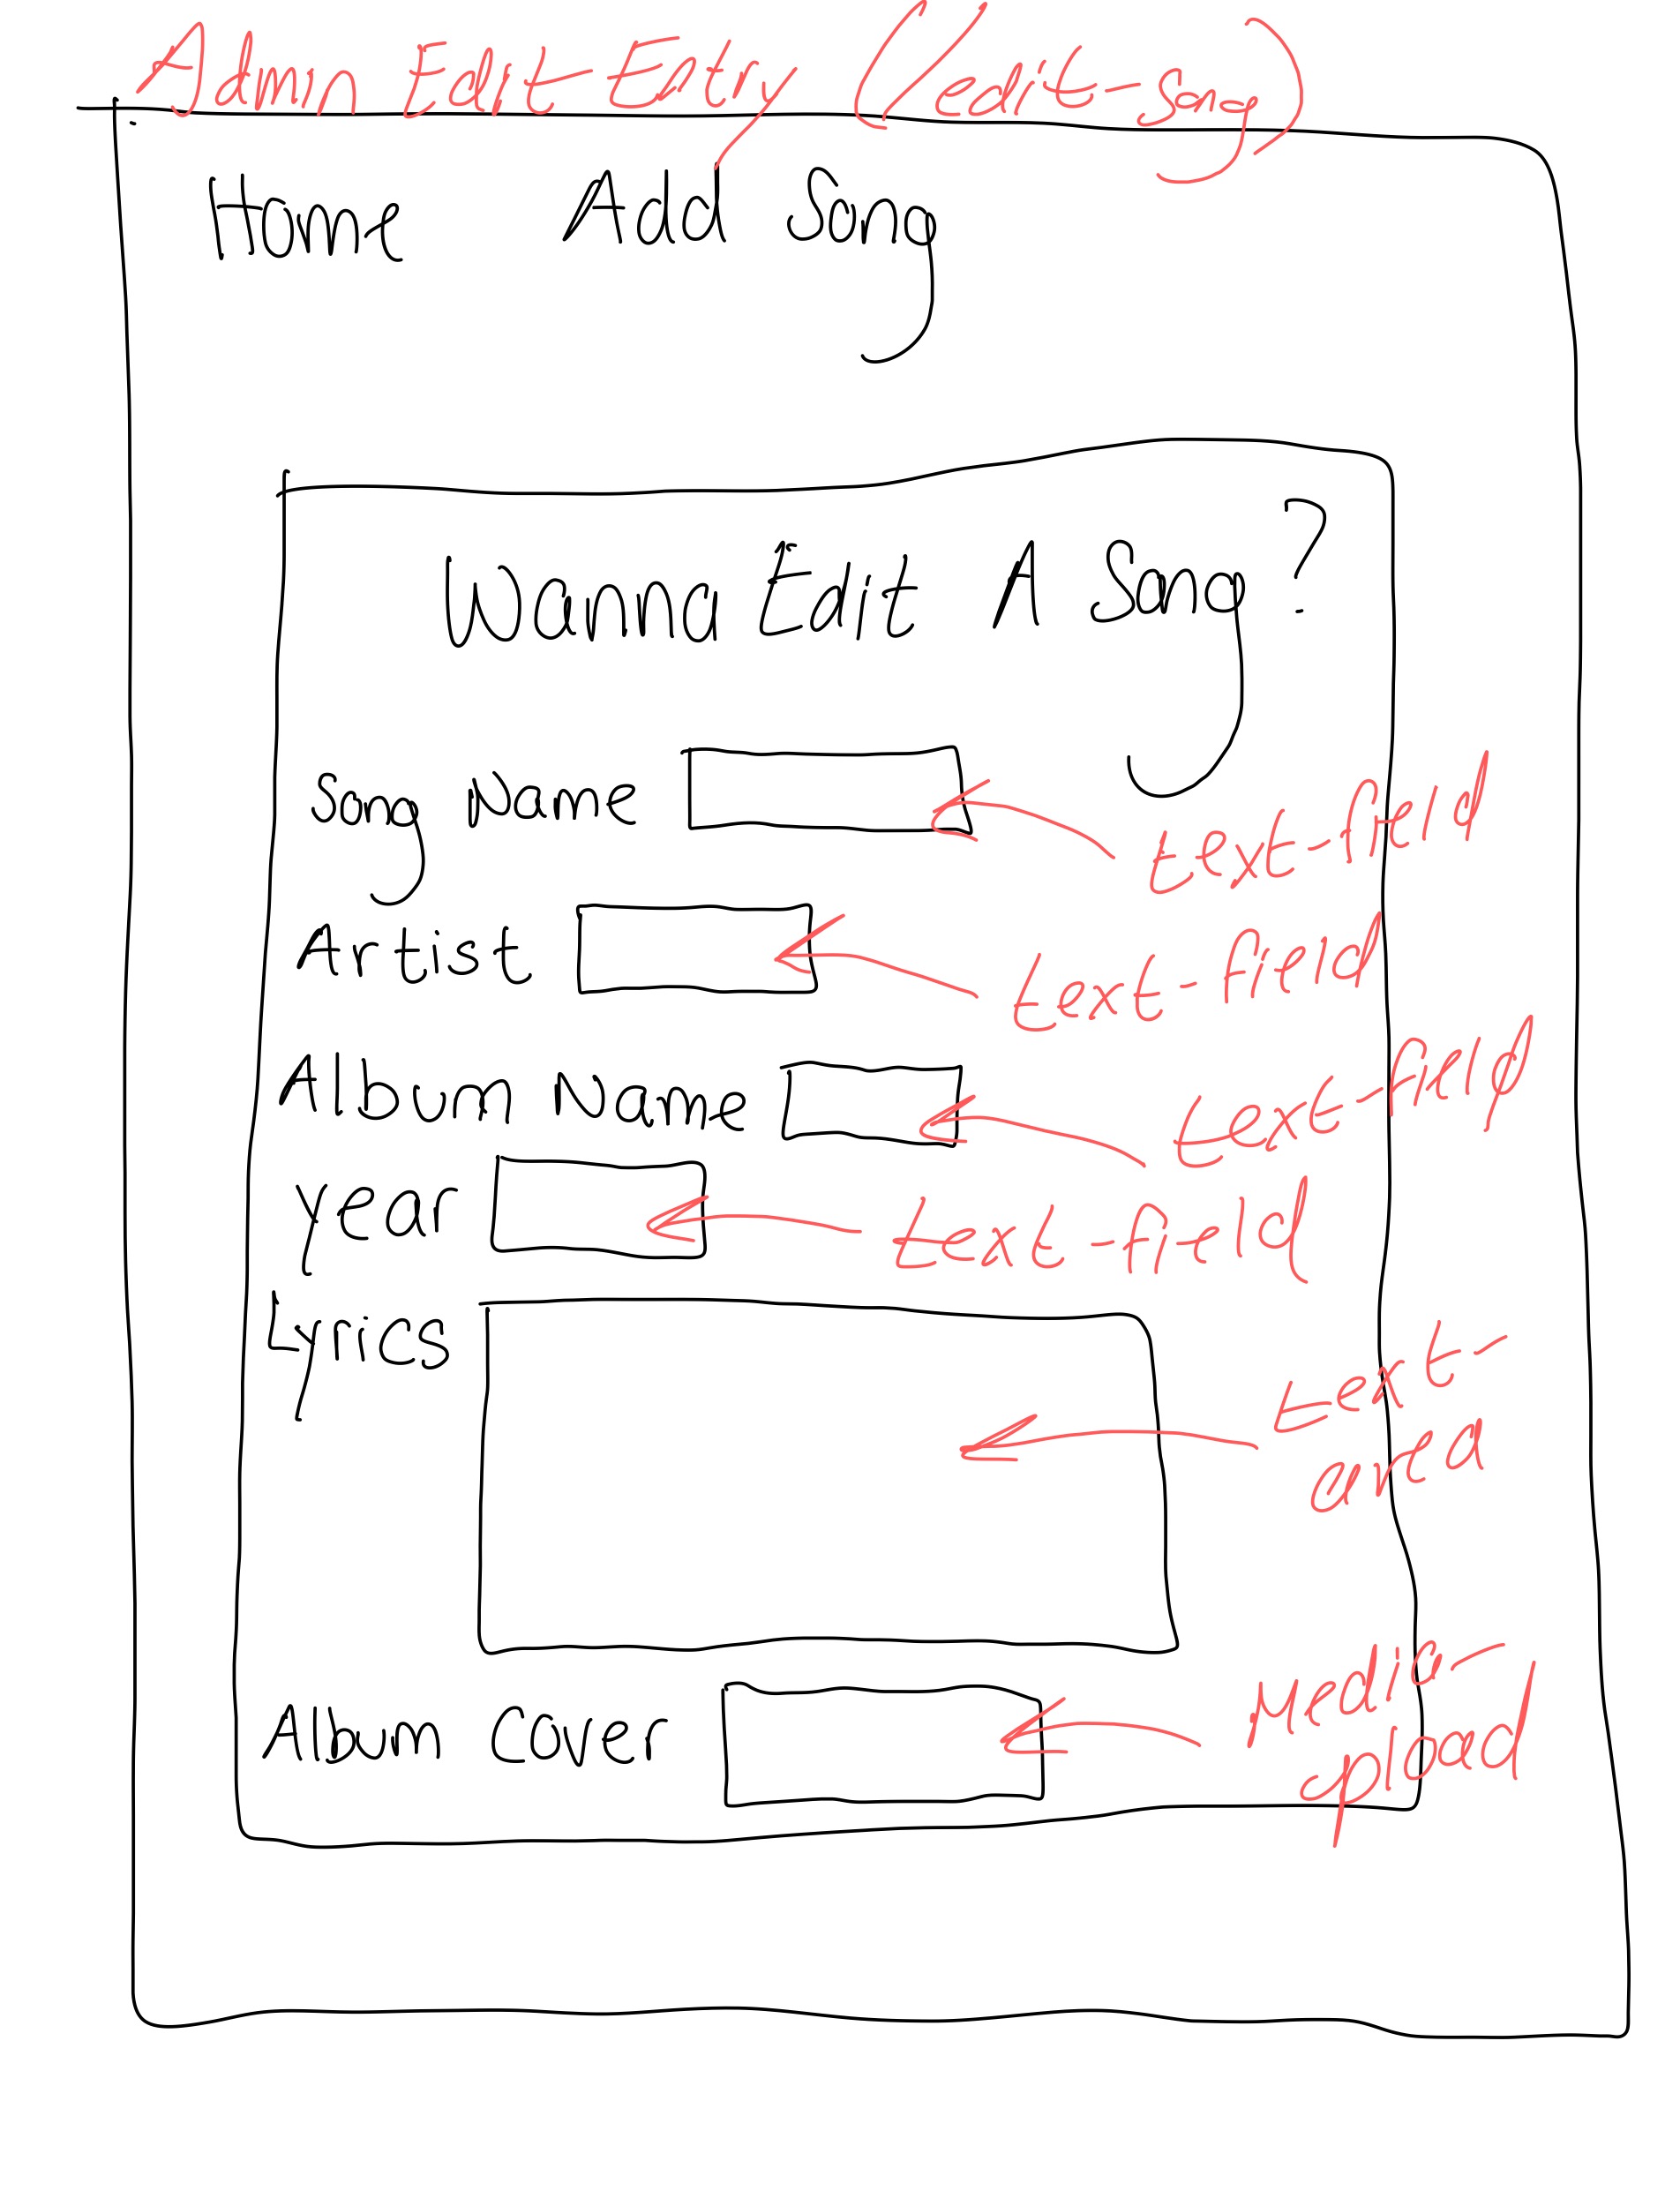 Admin Edit Entry (/edit-song)
Home Add Song
Wanna Edit A Song?
Song Name
text-field
Artist
text-field
Album Name
text-field
Year
text-field
Lyrics
text-
area
Album Cover
Media-
upload